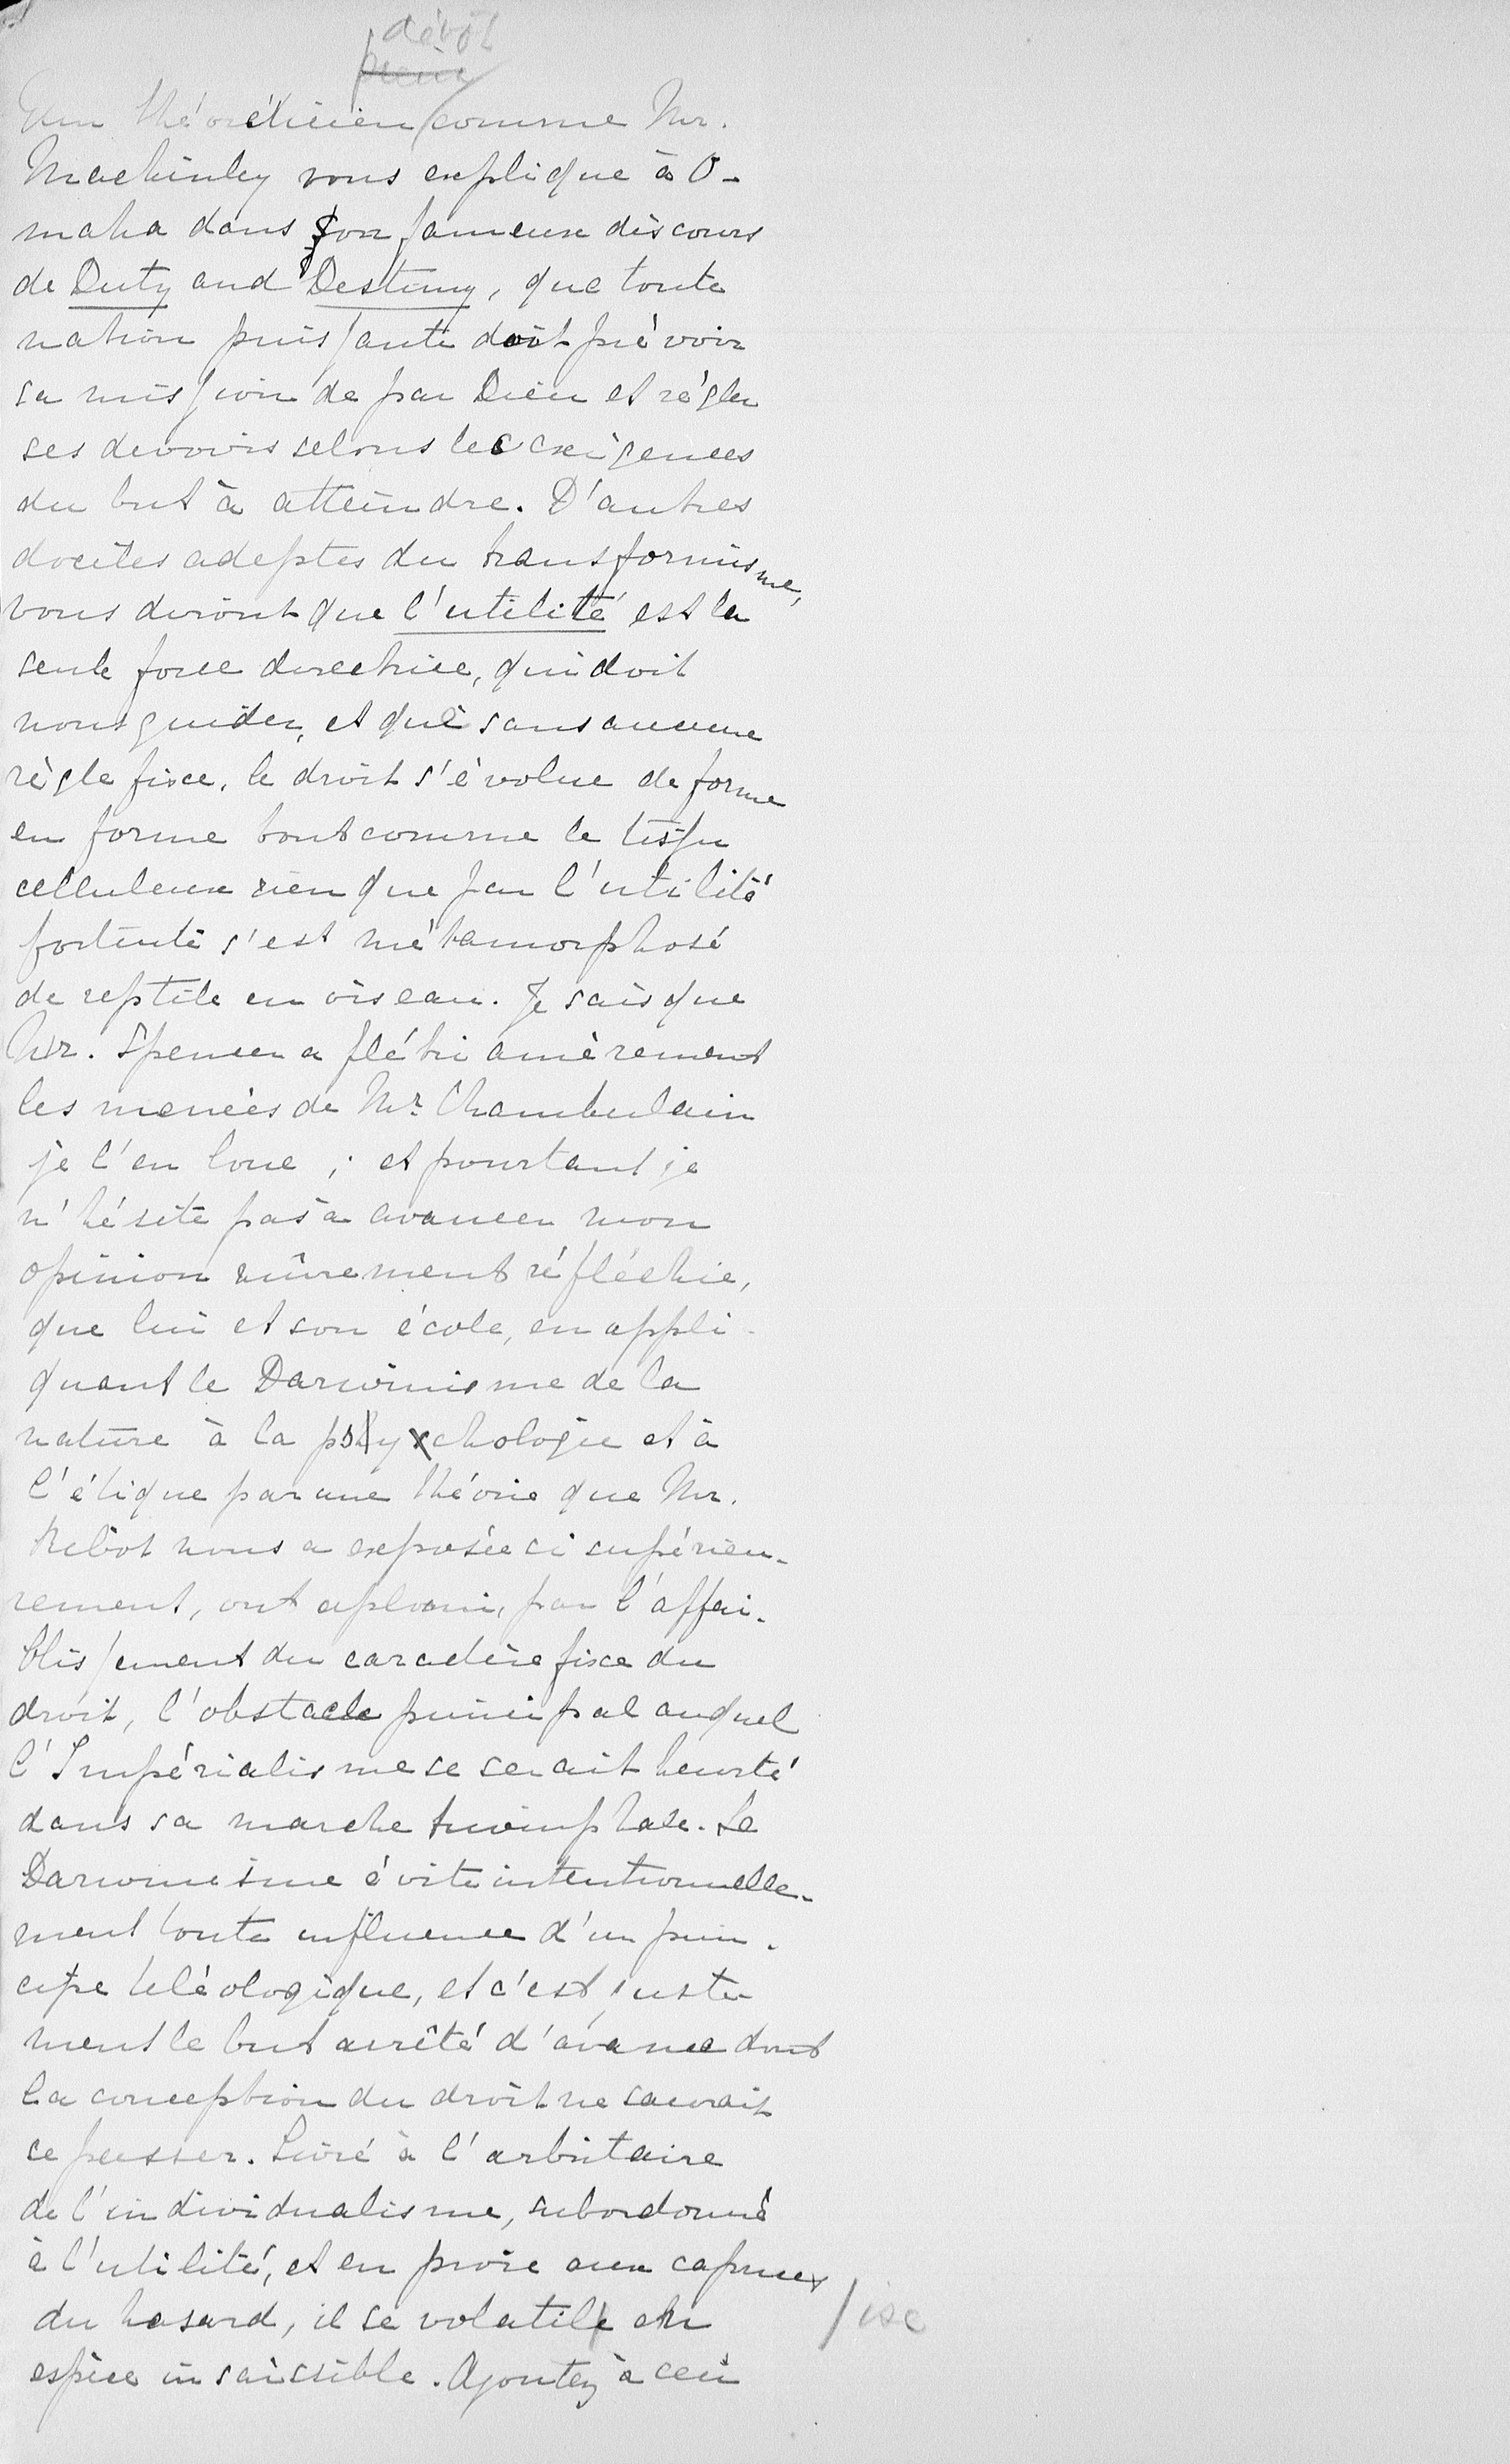 dévot
pieux
Qu'un théoréticien comme Mr.
Mackinley vous explique à O-
maha dans son fameux discours
de Duty and Destiny, que toute
nation puissante doit prévoir
sa mission de par Dieu et régler
ses devoirs selons les exigences
du but à atteindre. D'autres
dociles adeptes du transformisme,
vous diront que l'utilité est la
seule force directrice, qui doit
nous guider, et que sans aucune
règle fixe, le droit s'évolue de forme
en forme tout comme le tissu
celluleux rien que par l'utilité
fortuite s'est métamorphosé
de reptile en oiseau. Je sais que
Mr. Spencer a flétri amèrement
les menées de Mr. Chamberlain
je l'en loue ; et pourtant je
n'hésite pas à avancer mon
opinion mûrement réfléchie,
que lui et son école, en appli-
quant le Darwinisme de la
nature à la psychologie et à
l'étique par une théorie que Mr.
Ribot nous a exposée ci supérieu-
rement, ont aplani, par l'affai-
blissement du caractère fixe du
droit, l'obstacle principal auquel
l'Impérialisme se serait heurté
dans sa marche triomphale. Le
Darwinisme évite intentionnelle-
ment toute influence d'un prin-
cipe teléologique, et c'est juste
ment le but arrêté d'avance dont
la conception du droit ne saurait
ce passer. Livré à l'arbitaire
de l'individualisme, subordonné
à l'utilité, et en proie aux caprices
du hasard, il se volatil en /ise
espèce insaicsible. Ajoutez à ceci